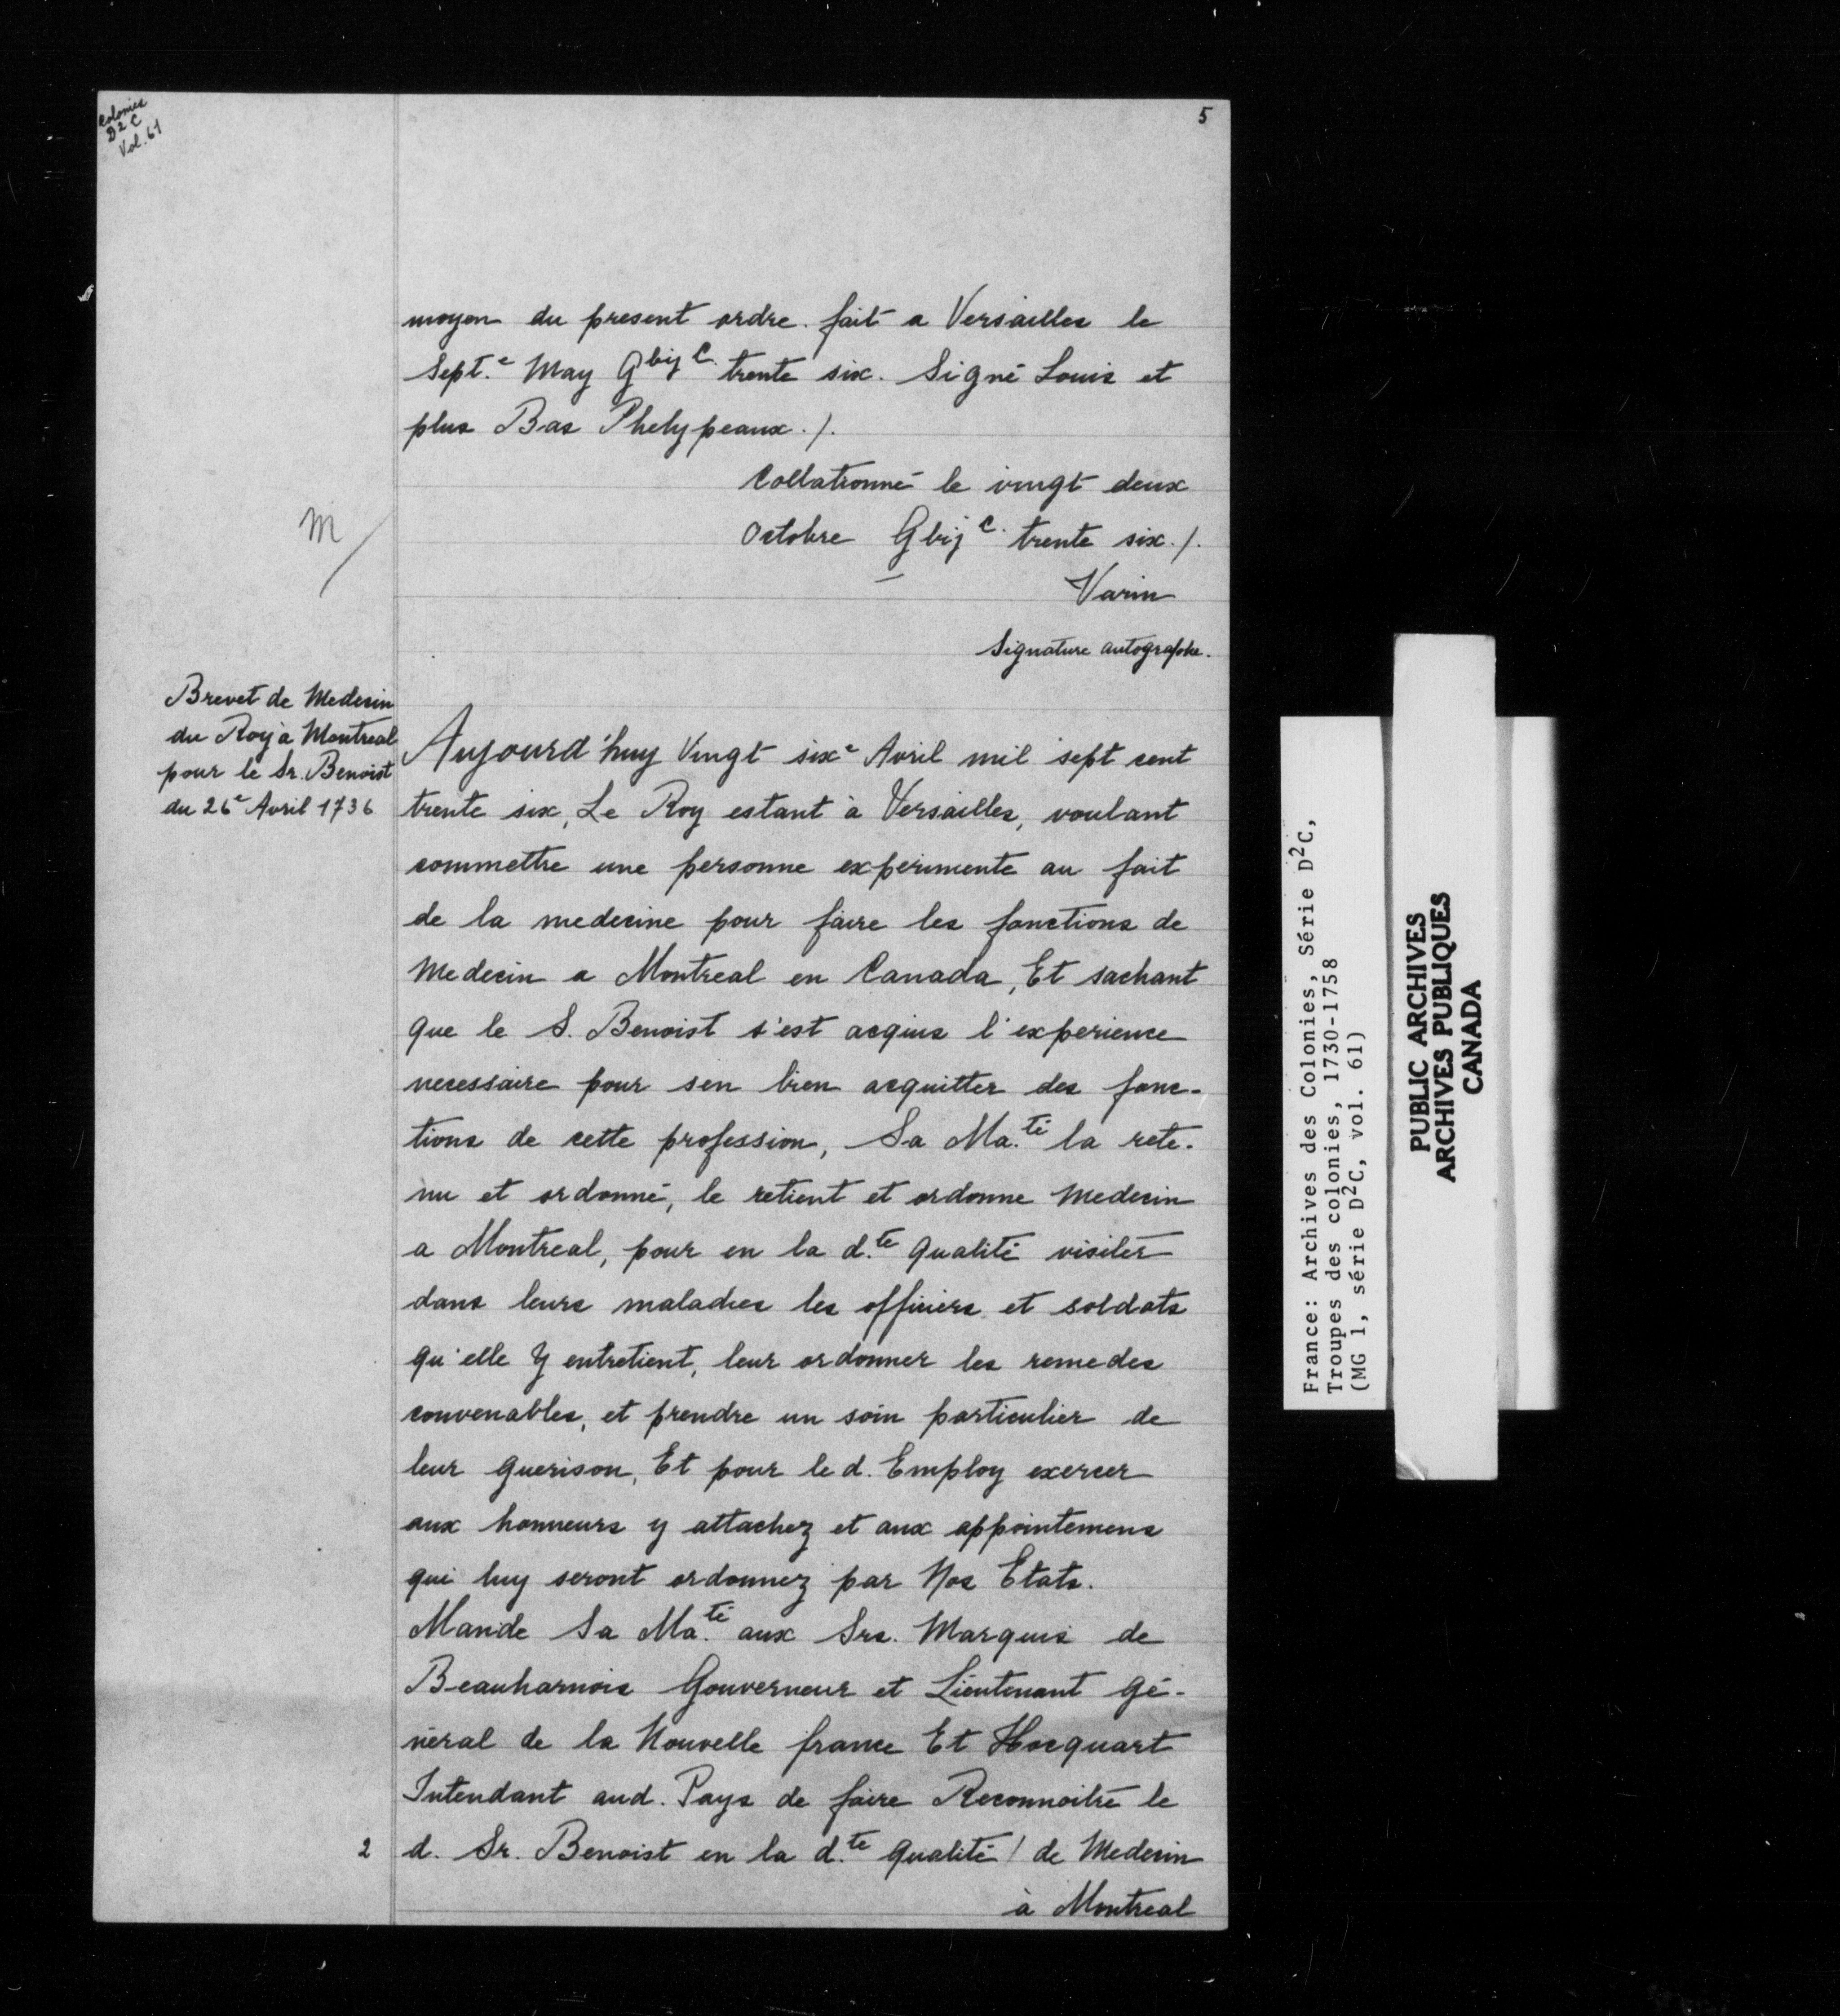 Colonies
D2C
Vol. 61
5
moyen du present ordre. fait a Versailles le
Sept.e May Gbij C. trente six. Signé Louis et
plus Bas Phelypeaux ./.
Collationné le vingt deux
Octobre Gbij c. trente six ./.
Varin
Signature autographe.
M/
Brevet de Medecin
du Roy à Montreal
pour le Sr. Benoist
du 26e Avril 1736
Aujourd'huy Vingt sixe Avril mil sept cent
trente six, Le Roy estant à Versailles, voulant
commettre une personne experimente au fait
de la medecine pour faire les fonctions de
Medecin a Montreal en Canada, Et sachant
que le S. Benoist s'est acquis l'experience
necessaire pour sen bien acquitter des fonc-
tions de cette profession, Sa Ma.té la rete-
nu et ordonné, le retient et ordonne Medecin
a Montreal, pour en la d.te qualité visiter
dans leurs maladies les officiers et soldats
qu'elle Y entretient, leur ordonner les remedes
convenables, et prendre un soin particulier de
leur guerison, Et pour le d. Employ exercer
aux honneurs y attachez et aux appointemens
qui luy seront ordonnez par Nos Etats.
Mande Sa Ma.té aux Srs. Marquis de
Beauharnois Gouverneur et Lieutenant Gé-
néral de la Nouvelle france Et Hocquart
Intendant aud. Pays de faire Reconnoitre le
2 d. Sr. Benoist en la d.te qualité / de Medecin
à Montreal
France: Archives des Colonies, Série D2C,
Troupes des colonies, 1730-1758
(MG 1, série D2C, vol. 61)
PUBLIC ARCHIVES
ARCHIVES PUBLIQUES
CANADA